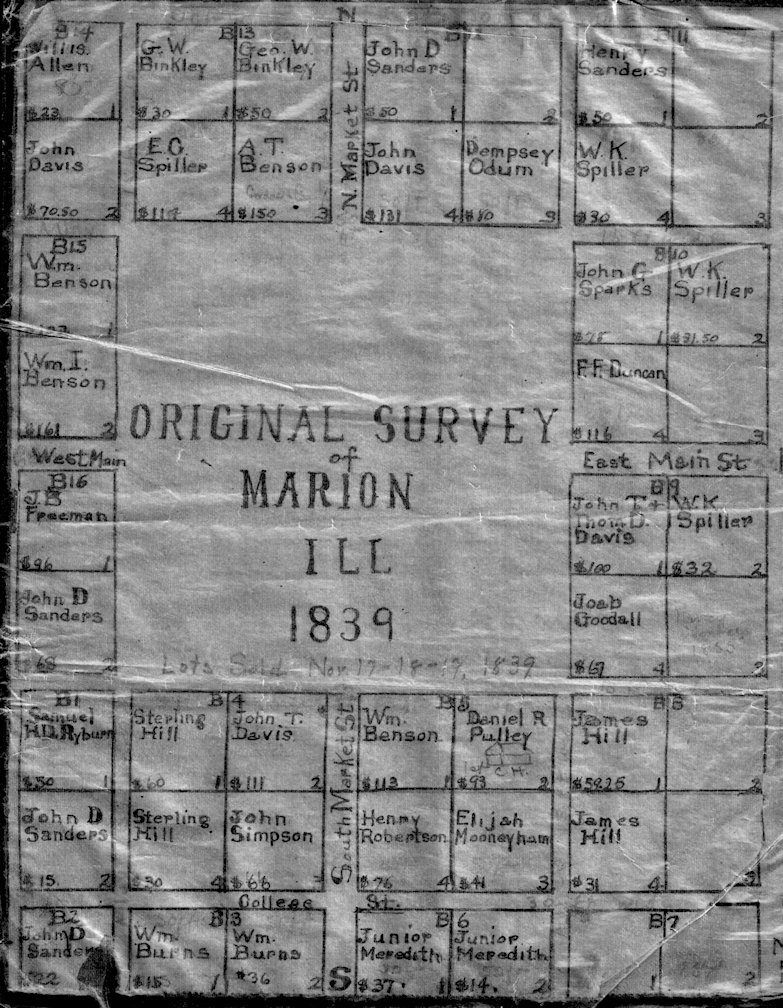 N
B 14
Willis
Allen
$23 1
John
Davis
$70.50 2
B 13
G. W.
Binkley
$30 1
Geo. W.
Binkley
$50 2
E.G.
Spiller
$117 4
A.T.
Benson
$150 3
N. Market St
B
John D
Sanders
$50 1
2
John
Davis
$131 4
Dempsey
Odum
3
B 11
Henry
Sanders
$50 1
2
W.K.
Spiller
$30 4
3
B15
Wm.
Benson
1
Wm. I.
Benson
$161 2
B 10
John G
Sparks
1
W.K.
Spiller
$31.50 2
F.F. Duncan
$116 4
3
ORIGINAL SURVEY
of
MARION
ILL
1839
Lots Sold Nov 17-18-19, 1839
West Main
East Main St
B16
J.B
Freeman
$96 1
John D
Sanders
$68 2
B 9
John T. +
Thom D.
Davis
$100 1
W.K
Spiller
$32 2
Joab
Goodall
$69 4
B1
Samuel
H.D. Ryburn
$30 1
John D
Sanders
$15 2
B 4
Sterling
Hill
$60 1
John T.
Davis
$111 2
Sterling
Hill
$30 4
John
Simpson
$66 3
South Market St
B 5
Wm.
Benson
$113 1
Daniel R
Pulley
1st C.H.
$93 2
Henry
Robertson
$76 4
Elijah
Mooneyham
$41 3
B 8
James
Hill
$59.25 1
2
James
Hill
$31 4
3
College St.
B2
John D
Sanders
$22
B 3
Wm.
Burns
$15 1
Wm.
Burns
$36 2
S
B 6
Junior
Meredith
$37. 1
Junior
Meredith
$14. 2
B 7
1
2
N